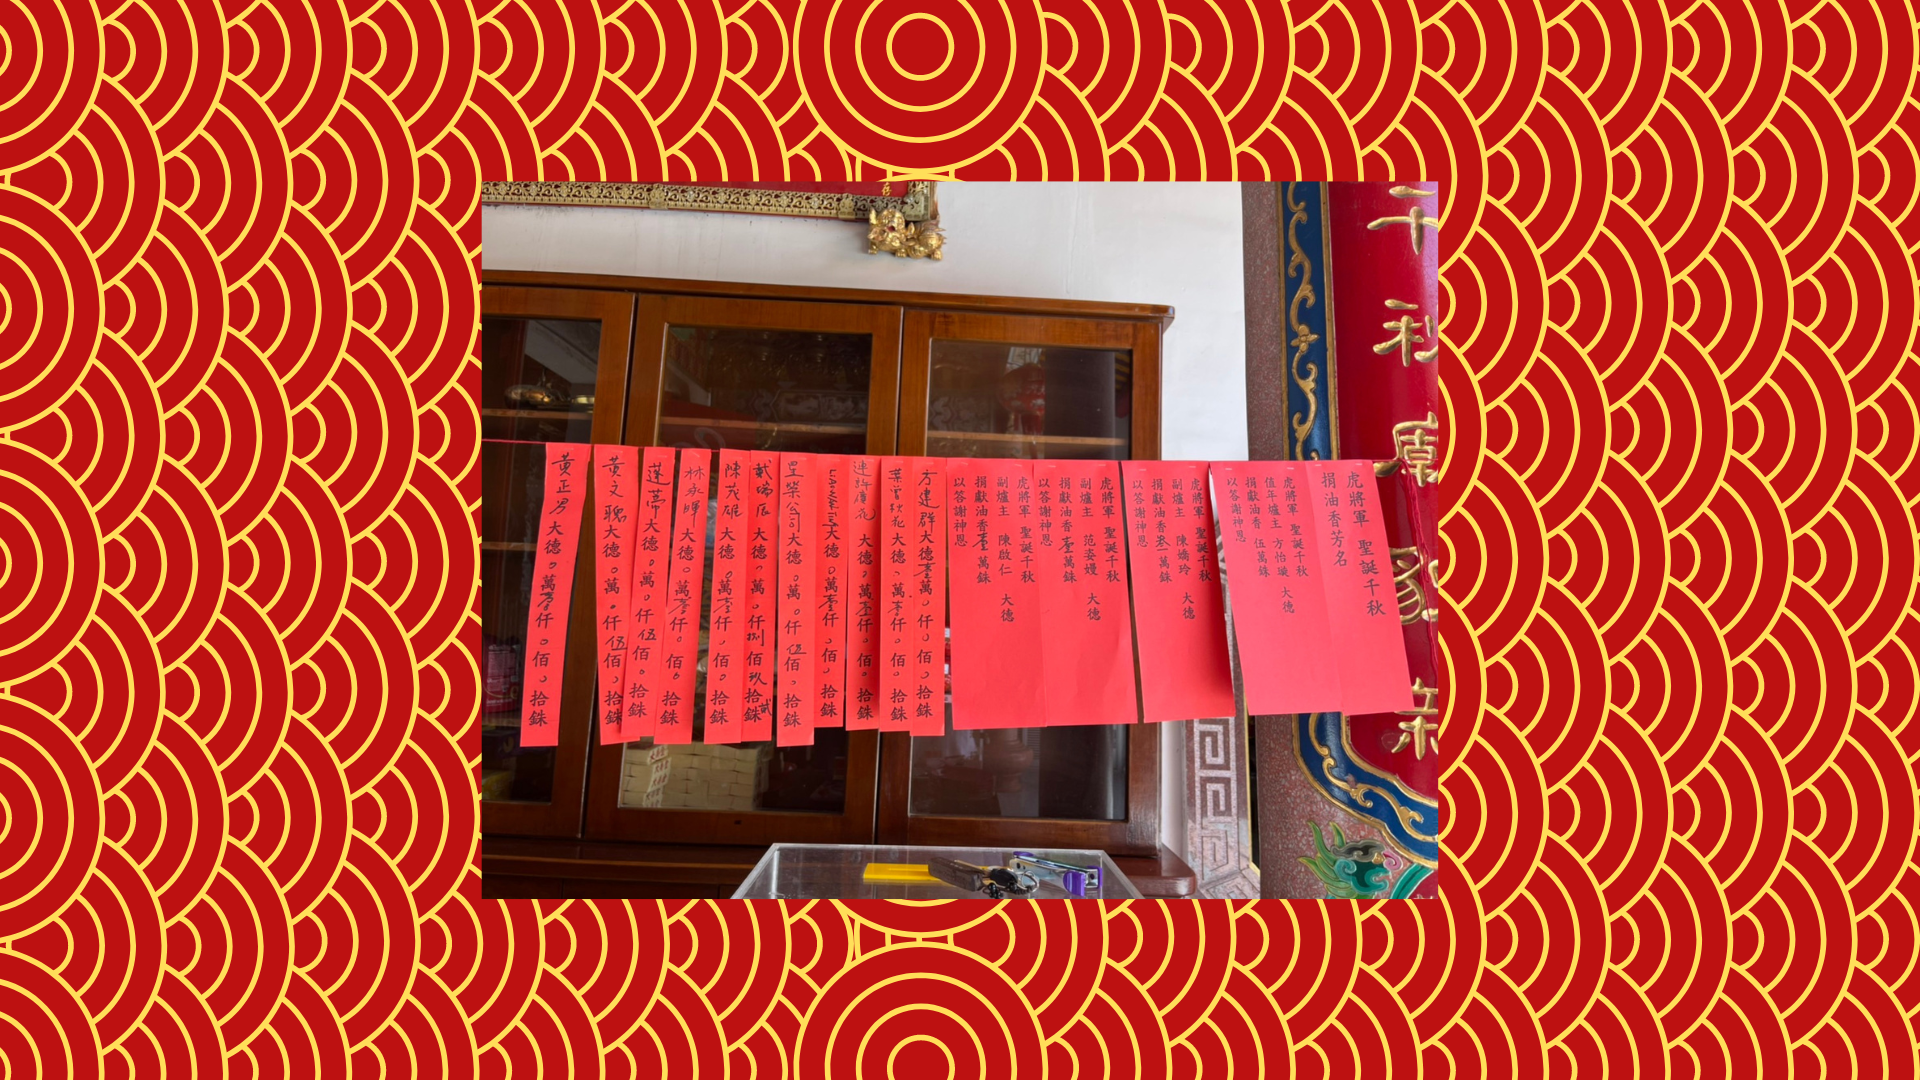 虎將軍 聖誕千秋
捐油香芳名
虎將軍 聖誕千秋
值年爐主 方怡璇 大德
捐獻油香 伍萬銖
以答謝神恩
虎將軍 聖誕千秋
副爐主 陳嬌玲 大德
捐獻油香叁萬銖
以答謝神恩
虎將軍 聖誕千秋
副爐主 范姿嫚 大德
捐獻油香壹萬銖
以答謝神恩
虎將軍 聖誕千秋
副爐主 陳啟仁 大德
捐獻油香壹萬銖
以答謝神恩
方建群大德壹萬0仟0佰0拾銖
大德0萬 仟0佰0拾銖
大德0萬 仟0佰0拾銖
大德0萬壹仟0佰0拾銖
公司大德0萬0仟伍佰0拾銖
戴瑞 大德0萬0仟捌佰玖拾貳銖
陳茂雄大德0萬壹仟0佰0拾銖
林永暉大德0萬 仟0佰0拾銖
蓮蒂大德0萬0仟伍佰0拾銖
黃文聰大德0萬0仟伍佰0拾銖
黃正男大德0萬 仟0佰0拾銖
千秋